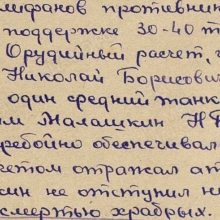 лифанов противник
поддержке 30-40 т
Орудийный расчет, ч
Николай Борисови
один средний танк
им Малашкин Н.Ф
ребойно обеспечивал
четом отражал ат
кин не отступил н
смертью храбрых.